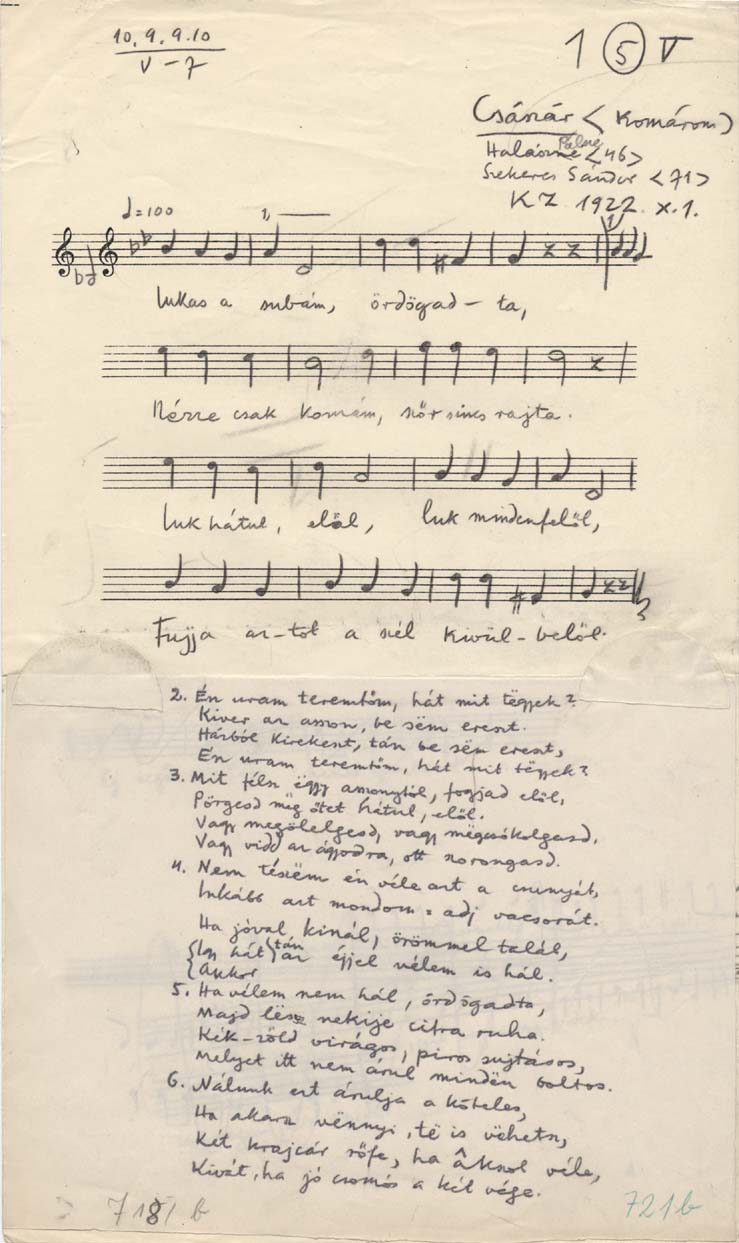 10, 9, 9, 10
V – 7
1 5 V
Császár < Komárom)
Halászné Pálné <46>
Szekeres Sándor <71>
KZ 1922. X. 1.
♩=100
1,
1
lukas a subám, ördögad – ta,
Nézze csak komám, szőr sincs rajta.
luk hátul, elöl, luk mindenfelöl,
Fujja az-tot a szél kivül-belöl.
2. Én uram teremtőm, hát mit tëgyek?
Kiver az asszon, be sëm ereszt.
Házból kirekeszt, tán be sëm ereszt,
Én uram teremtőm, hát mit tëgyek?
3. Mit félsz ëggy asszonytól, fogjad elöl,
Pörgesd mëg őtet hátul, elöl.
Vagy megölelgesd, vagy mëgcsókolgasd,
Vagy vidd az ágyodra, ott szorongasd.
4. Nem tészëm én véle azt a csunyját,
Inkább azt mondom: adj vacsorát.
Ha jóval kinál, örömmel talál,
{Igy hát} tán az éjjel vélem is hál.
{Akkor
5. Ha vélem nem hál, ördögadta,
Majd lësz nekije citra ruha.
Kék-zöld virágos, piros sujtásos,
Melyet itt nem árul mindën boltos.
6. Nálunk ezt árulja a köteles,
Ha akarsz vënnyi, të is vëhetsz,
Két krajcár rőfe, ha âkszol véle,
Kivát, ha jó csomós a két vége.
718/b
721b